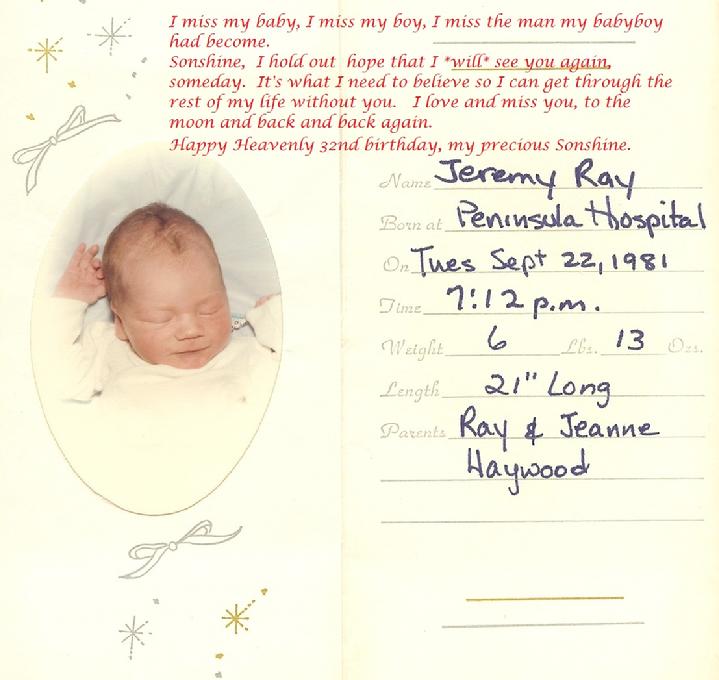 I miss my baby, I miss my boy, I miss the man my babyboy
had become.
Sonshine, I hold out hope that I *will* see you again,
someday. It's what I need to believe so I can get through the
rest of my life without you. I love and miss you, to the
moon and back and back again.
Happy Heavenly 32nd birthday, my precious Sonshine.
Name Jeremy Ray
Born at Peninsula Hospital
On Tues Sept 22, 1981
Time 7:12 p.m.
Weight 6 Lbs. 13 Ozs.
Length 21" Long
Parents Ray & Jeanne
Haywood